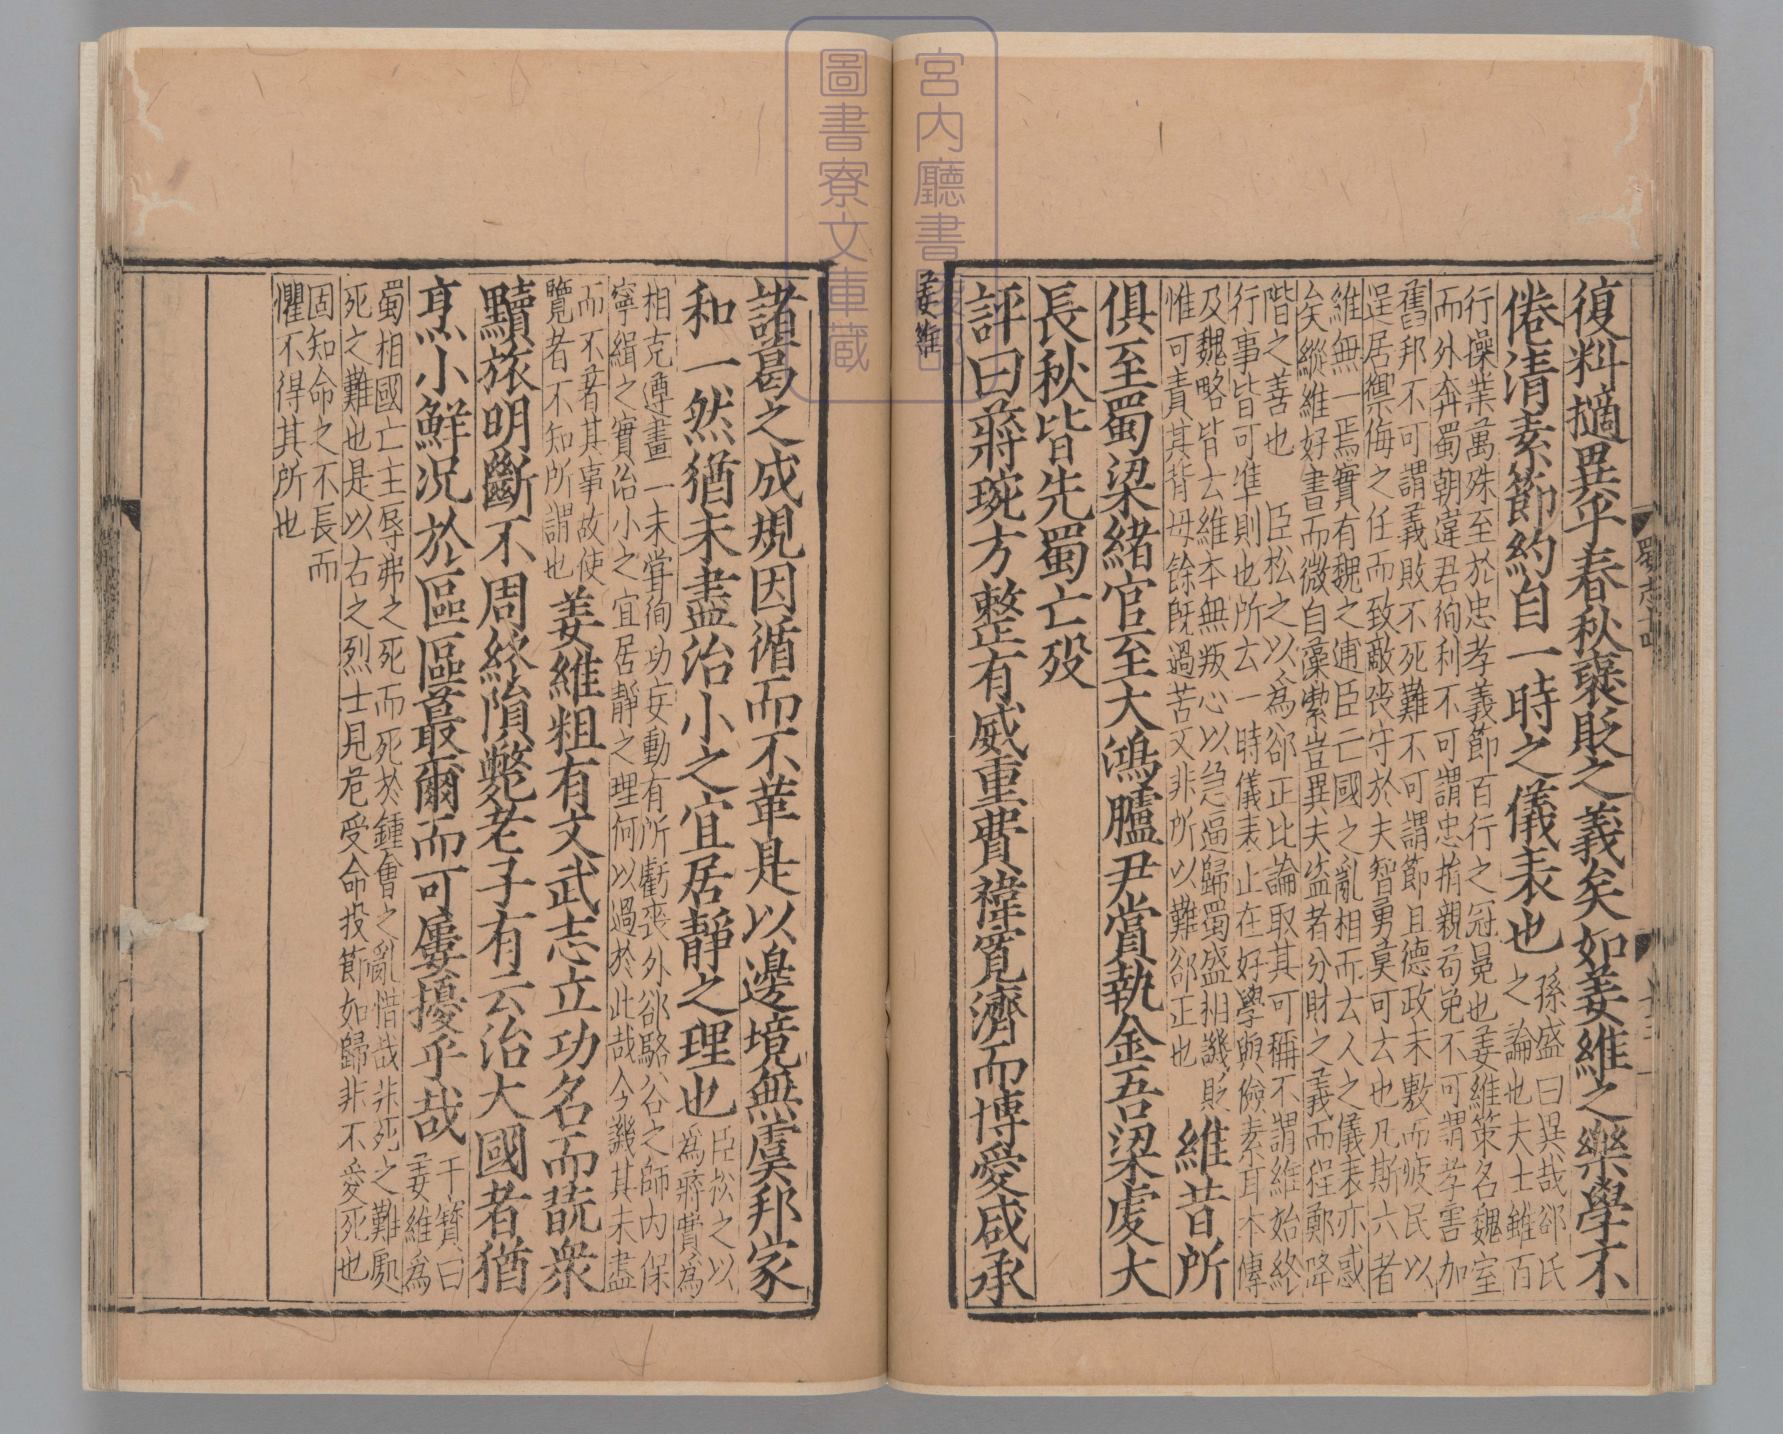 復料擿異乎春秋襃貶之義矣如姜維之樂學不
倦清素節約自一時之儀表也
孫盛曰異哉郤氏
之論也夫士雖百
行操業萬殊至於忠孝義節百行之冠冕也姜維策名魏室
而外奔蜀朝違君徇利不可謂忠捐親苟免不可謂孝害加
舊邦不可謂義敗不死難不可謂節且德政未敷而疲民以
逞居禦侮之任而致敵喪守於夫智勇莫可云也凡斯六者
維無一焉實有魏之逋臣亡國之亂相而云人之儀表亦惑
矣縱維好書而微自藻絜豈異夫盜者分財之義而程鄭降
階之善也　臣松之以為郤正此論取其可稱不謂維始終
行事皆可準則也所云一時儀表止在好學與儉素耳本傳
及魏略皆云維本無叛心以急逼歸蜀盛相譏貶
惟可責其背母餘旣過苦又非所以難郤正也
維昔所
俱至蜀梁緒官至大鴻臚尹賞執金吾梁虔大
長秋皆先蜀亡歿
評曰蔣琬方整有威重費禕寬濟而博愛咸承
姜維
諸葛之成規因循而不革是以邊境無虞邦家
和一然猶未盡治小之宜居靜之理也
臣松之以
為蔣費為
相克遵畫一未嘗徇功妄動有所虧喪外郤駱谷之師內保
寧緝之實治小之宜居靜之理何以過於此哉今譏其未盡
而不著其事故使
覽者不知所謂也
姜維粗有文武志立功名而翫衆
黷旅明斷不周終隕斃老子有云治大國者猶
烹小鮮況於區區蕞爾而可屢擾乎哉
干寶曰
姜維為
蜀相國亡主辱弗之死而死於鍾會之亂惜哉非死之難處
死之難也是以古之烈士見危受命投節如歸非不愛死也
固知命之不長而
懼不得其所也
蜀志十四
宮內廳書
圖書寮文庫藏